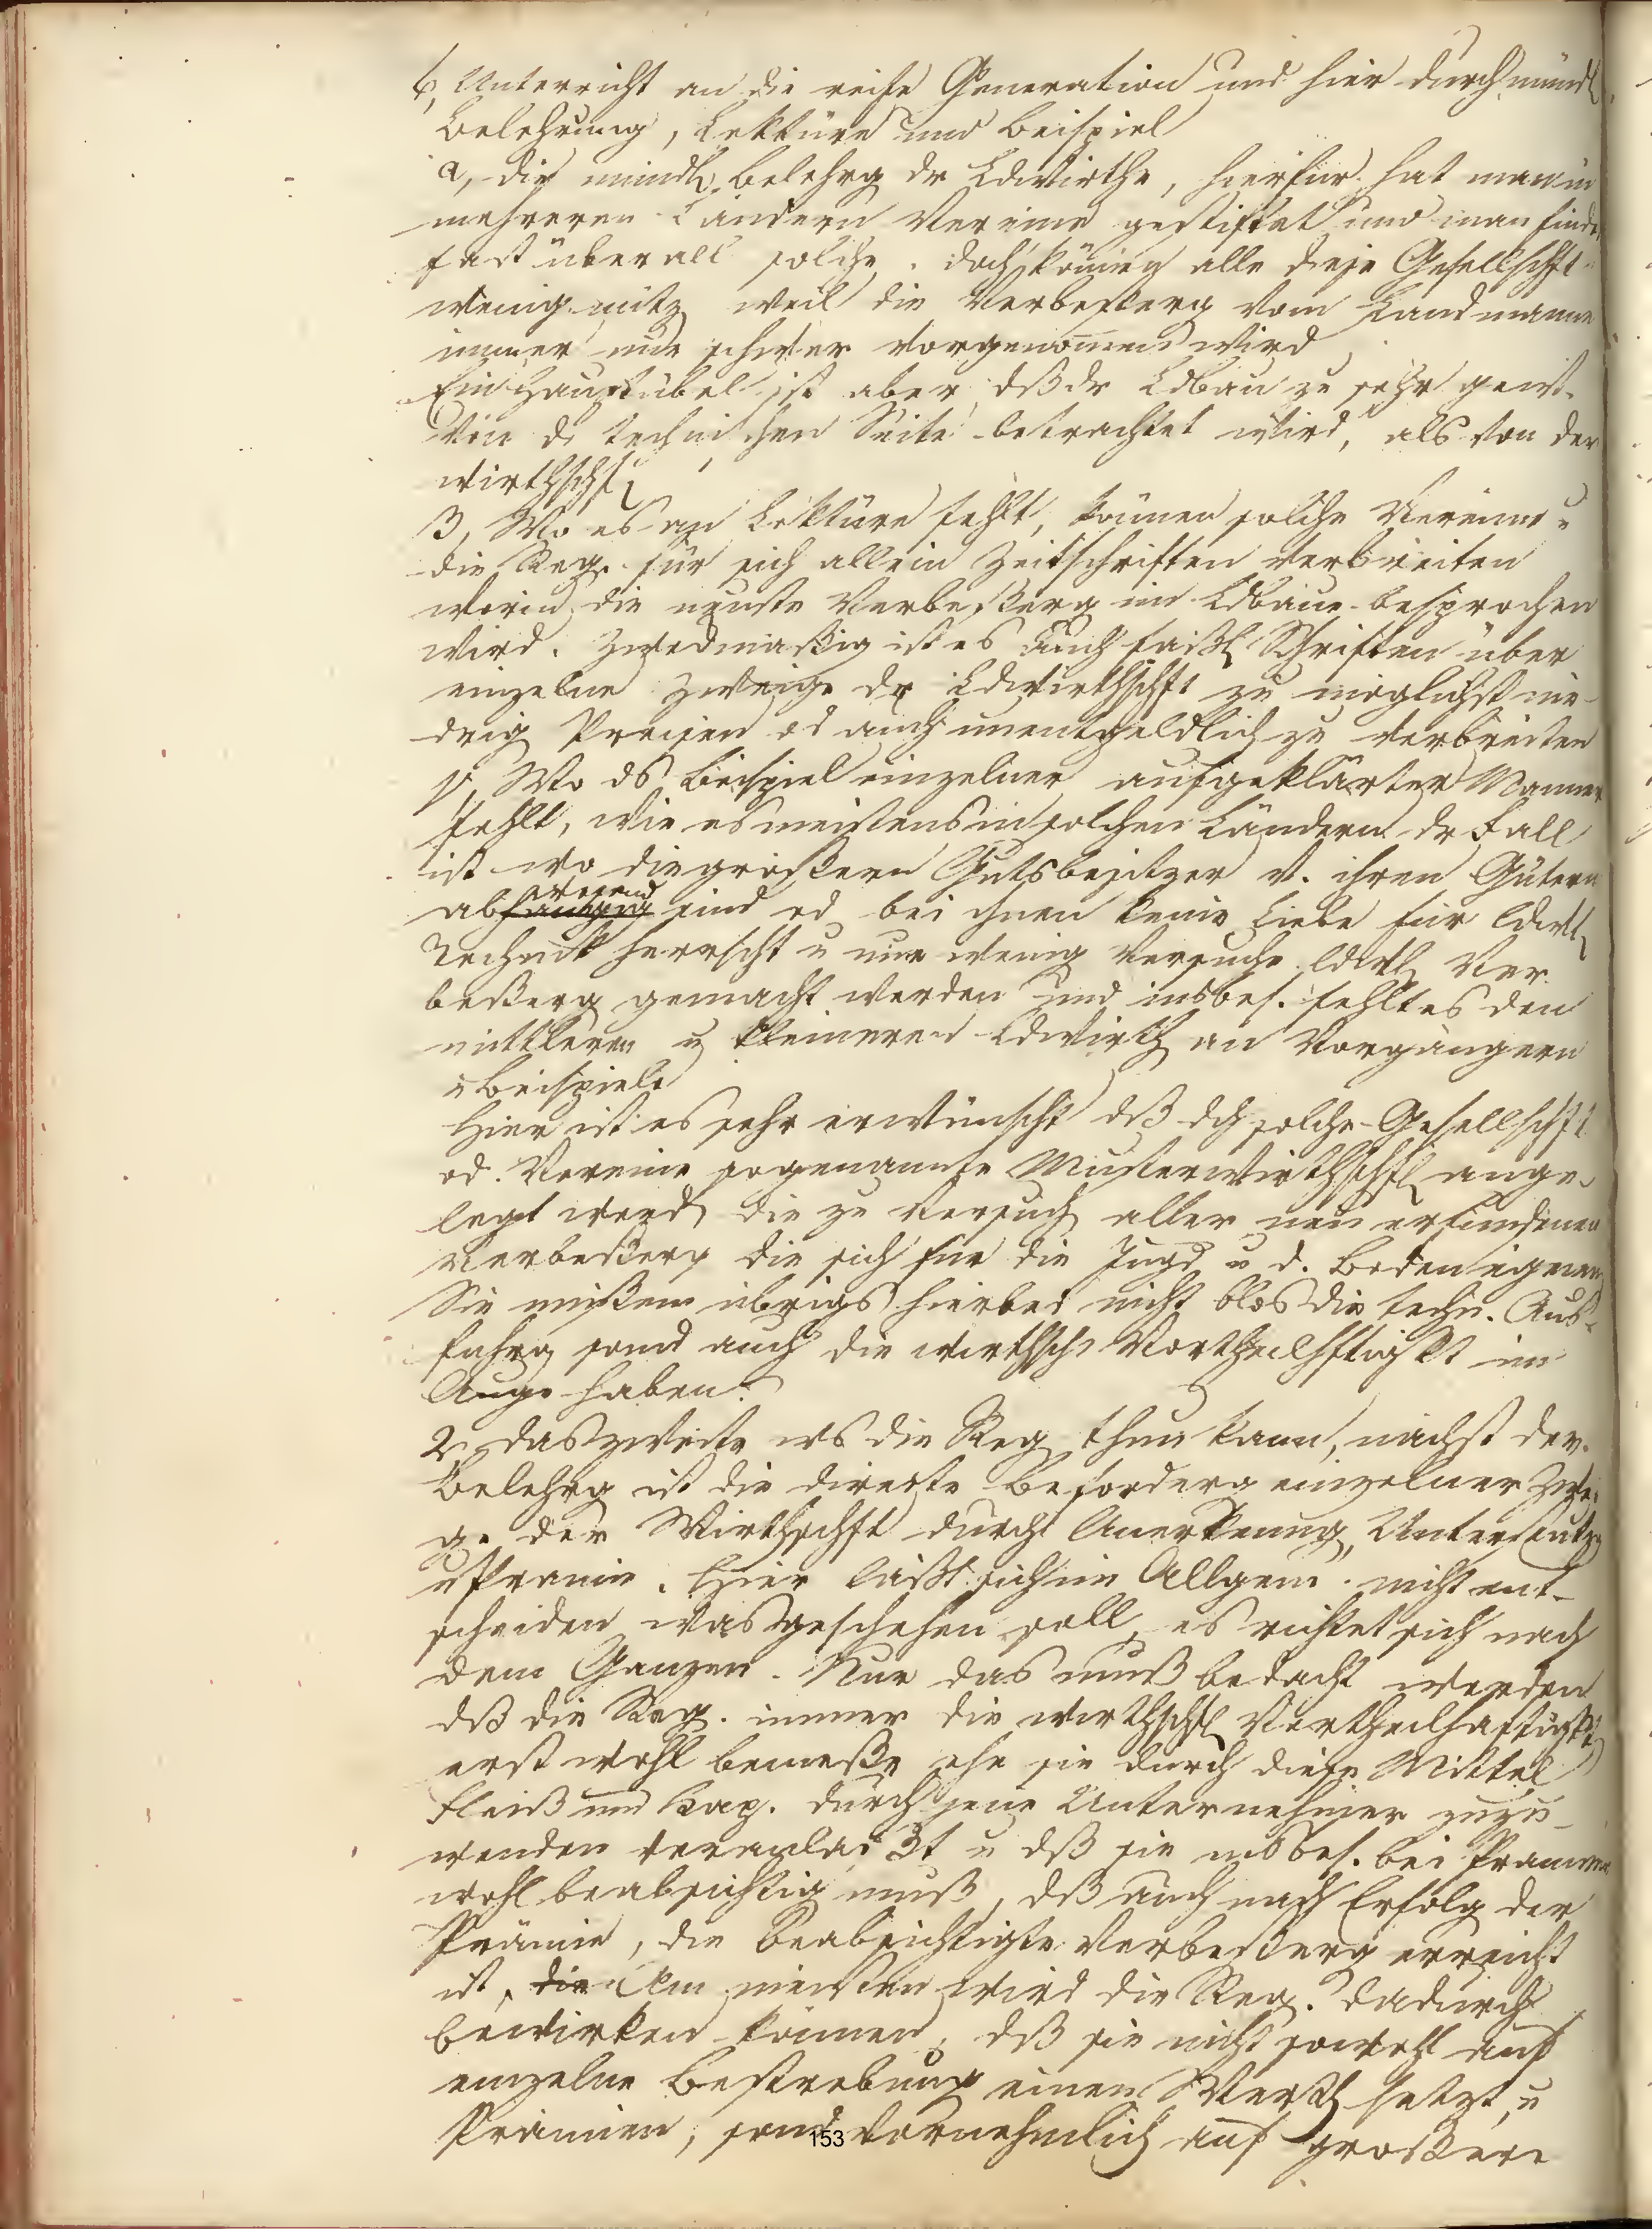 b, Unterricht an die reife Generation und hier durch mündl
Belehrung, Lektüre und Beispiel
α, die mündl. Belehrg dr Ldwirthe, hierfür hat man in
mehreren Ländern Vereine gestiftet und man finde
fast überall solche. doch können alle diese Gesellschft
wenig nütz weil die Verbeßerg vom Landmanne
immer nur schwer vorgenommen wird
Ein Hauptübel ist aber dß dr Ldbau zu sehr
von d. technischen Seite betrachtet wird, als von der
wirthschftl
β, Wo es an Lektüre fehlt, können solche Vereine u
die Reg. für sich allein Zeitschriften verbreiten
worin die neuste Verbeßerg im Ldbaue besprochen
wird. Zweckmäßig ist es auch faßl Schriften über
einzelne Zweige dr Ldwirthschft zu möglichst nie-
drig Preisen od auch unentgeldlich zu verbreiten
γ, Wo ds Beispiel einzelner aufgeklärter Männer
fehlt, wie es meistens in solchen Ländern dr Fall
ist wo die größern Gutsbesitzer v. ihren Gütern
abwesend sind od bei ihnen keine Liebe für ldwl
Technik herrscht u nur wenig Versuche ldwl Ver
beßerg gemacht werden und insbes. fehlt es den
mittleren u kleineren Ldwirth an Vorgängern
u Beispiele
Hier ist es sehr erwünscht dß dch solche Gesellschft
od. Vereine sogenannte Musterwirthschft ange-
legt werd, die zu Versuch aller neu erfundenen
Verbeßerg die sich für die Jugd u d. Boden eignen
Sie müßen übrigs hierbei nicht blos die techn. Aus-
führg sond auch die wirthsch Vortheilhftigkt im
Auge haben.
2, das zweite ws die Reg thun kann, nächst der
Belehrg ist die directe Beförderg einzelner Zwei
ge der Wirthschft durch Anerkenung, Unterstützg
u Prämie. Hier läßt sich im Allgem. nicht ent-
scheiden was geschehen soll, es richtet sich nach
dem Ganzen. Nur das muß bedacht werden
dß die Reg. immer die wirthschftl Vortheilhaftigkt
erst wohl bemeße ehe sie durch diese Mittel
Fleiß und Kap. durch jene Unternehmer zuzu-
wenden veranlaßt u dß sie insbes. bei Prämien
wohl beabsichtig muß, dß auch nach Erfolg der
Prämie, die beabsichtigte Verbeßerg erreicht
ist, die Am meisten wird die Reg. dadurch
bewirken können, dß sie nicht sowohl auf
einzelne Bestrebung einen Werth setzt, u
Prämien, sond vornehmlich auf größere
153